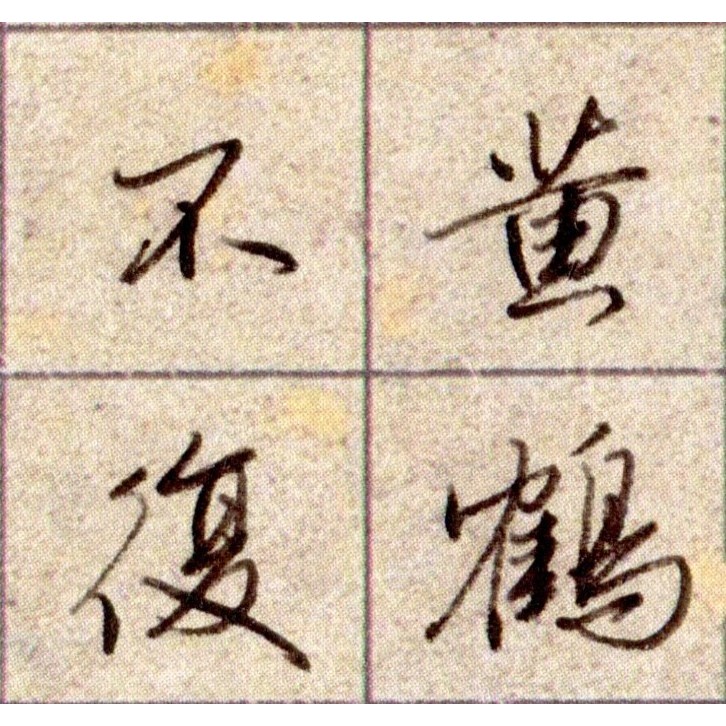 黄鶴
不復